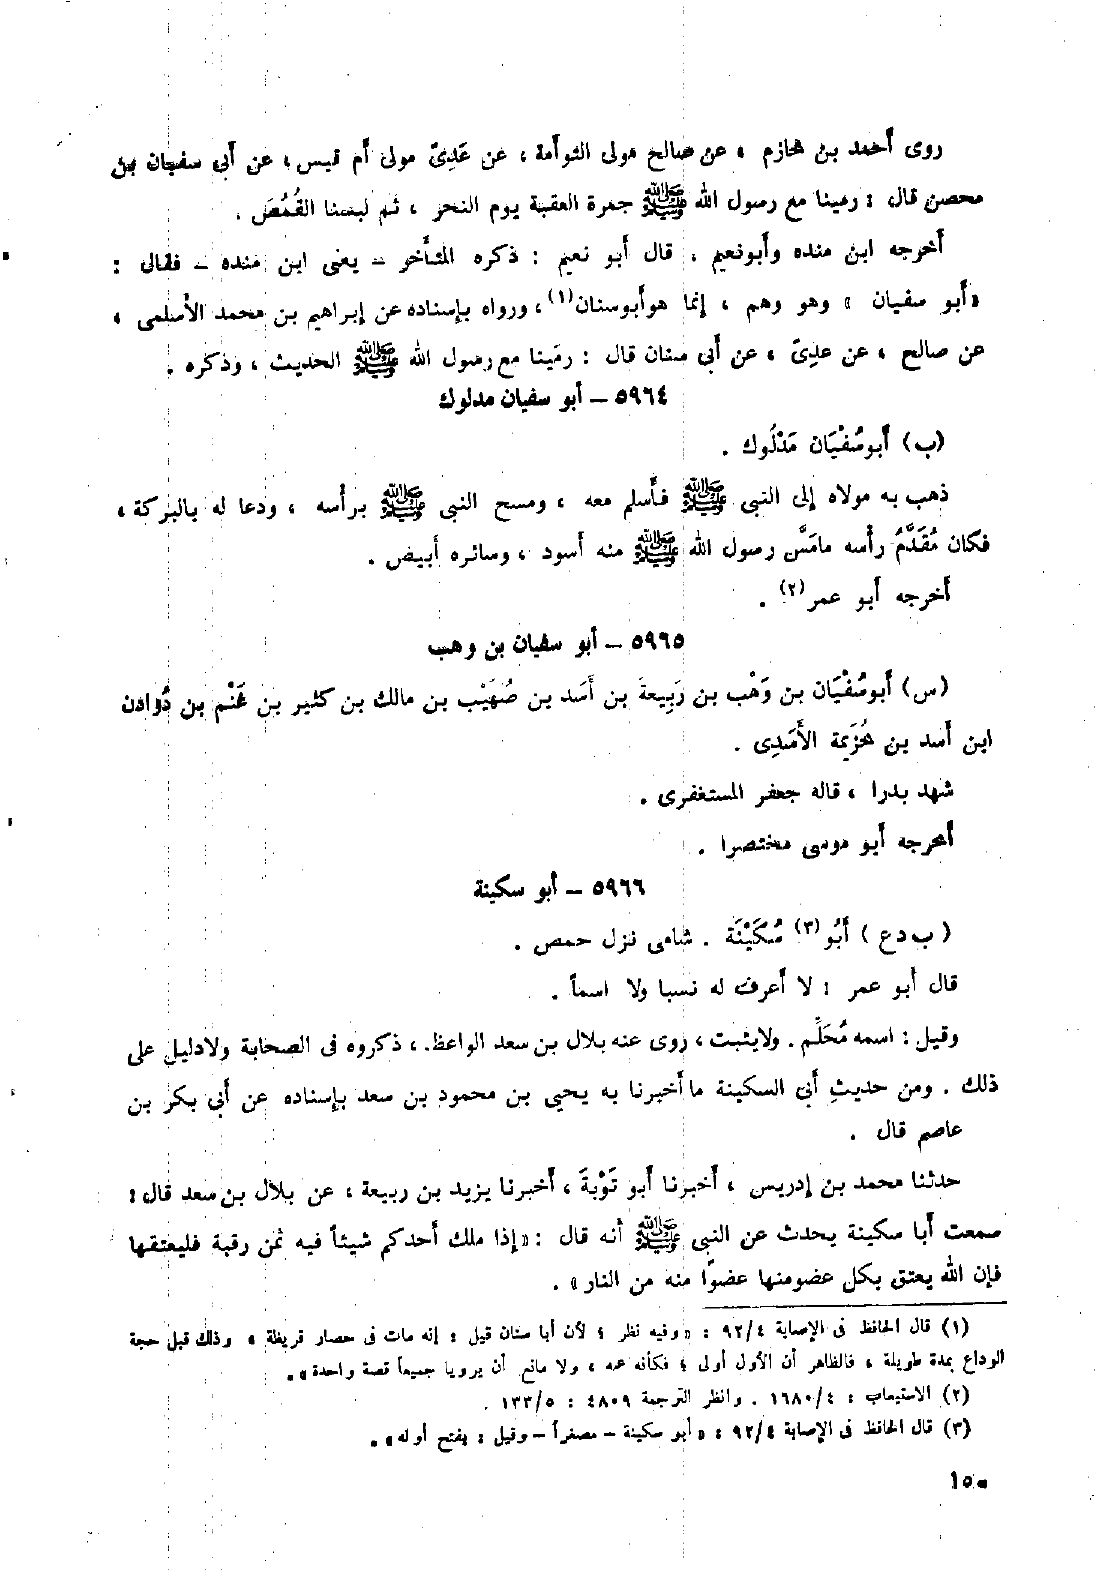 روى أحمد بن خازم ، عن صالح مولى التوأمة ، عن عَدِىّ مولى أم قيس ، عن أبى سفيان بن
محصن قال : رمينا مع رسول الله ﷺ جمرة العقبة يوم النحر ، ثم لبسنا القُمُصَ .
أخرجه ابن منده وأبونعيم ، قال أبو نعيم : ذكره المتأخر – يعنى ابن منده – فقال :
«أبو سفيان » وهو وهم ، إنما هوأبوسنان(١)، ورواه بإسناده عن إبراهيم بن محمد الأسلمى ،
عن صالح ، عن عدِىّ ، عن أبى سنان قال : رمَينا مع رسول الله ﷺ الحديث ، وذكره .
٥٩٦٤ – أبو سفيان مدلوك
(ب) أبوسُفْيَان مَدْلُوك .
ذهب به مولاه إلى النبى ﷺ فأسلم معه ، ومسح النبى ﷺ برأسه ، ودعا له بالبركة ،
فكان مُقَدَّمُ رأسه مامَسَّ رسول الله ﷺ منه أسود ، وسائره أبيض .
أخرجه أبو عمر(٢) .
٥٩٦٥ – أبو سفيان بن وهب
(س) أبوسُفْيَان بن وَهْب بن رَبِيعةَ بن أَسَد بن صُهَيْب بن مالك بن كثير بن غَنْم بن دُوادن
ابن أسد بن خُزَيمة الأَسَدِى .
شهد بدرا ، قاله جعفر المستغفرى .
أخرجه أبو موسى مختصرا .
٥٩٦٦ – أبو سكينة
( ب د ع ) أَبُو(٣) سُكَيْنَة . شامى نزل حمص .
قال أبو عمر : لا أعرف له نسبا ولا اسماً .
وقيل : اسمه مُحَلِّم . ولايثبت ، روى عنه بلال بن سعد الواعظ. ، ذكروه فى الصحابة ولادليل على
ذلك . ومن حديثِ أبى السكينة ما أخبرنا به يحيى بن محمود بن سعد بإسناده عن أبى بكر بن
عاصم قال .
حدثنا محمد بن إدريس ، أخبرنا أبو تَوْبةَ ، أخبرنا يزيد بن ربيعة ، عن بلال بن سعد قال :
سمعت أبا سكينة يحدث عن النبى ﷺ أنه قال : «إذا ملك أحدكم شيئاً فيه ثمن رقبة فليعتقها
فإن الله يعتق بكل عضومنها عضوًا منه من النار » .
(١) قال الحافظ فى الإصابة ٩٢/٤ : «وفيه نظر ؛ لأن أبا سنان قيل : إنه مات فى حصار قريظة ، وذلك قبل حجة
الوداع بمدة طويلة ، فالظاهر أن الأول أولى ؛ فكأنه عمه ، ولا مانع أن يرويا جميعاً قصة واحدة» .
(٢) الاستيعاب : ١٦٨٠/٤ . وانظر الترجمة ٤٨٠٩ : ١٣٣/٥ .
(٣) قال الحافظ فى الإصابة ٩٢/٤ : «أبو سكينة – مصغراً – وقيل : بفتح أوله» .
١٥٠